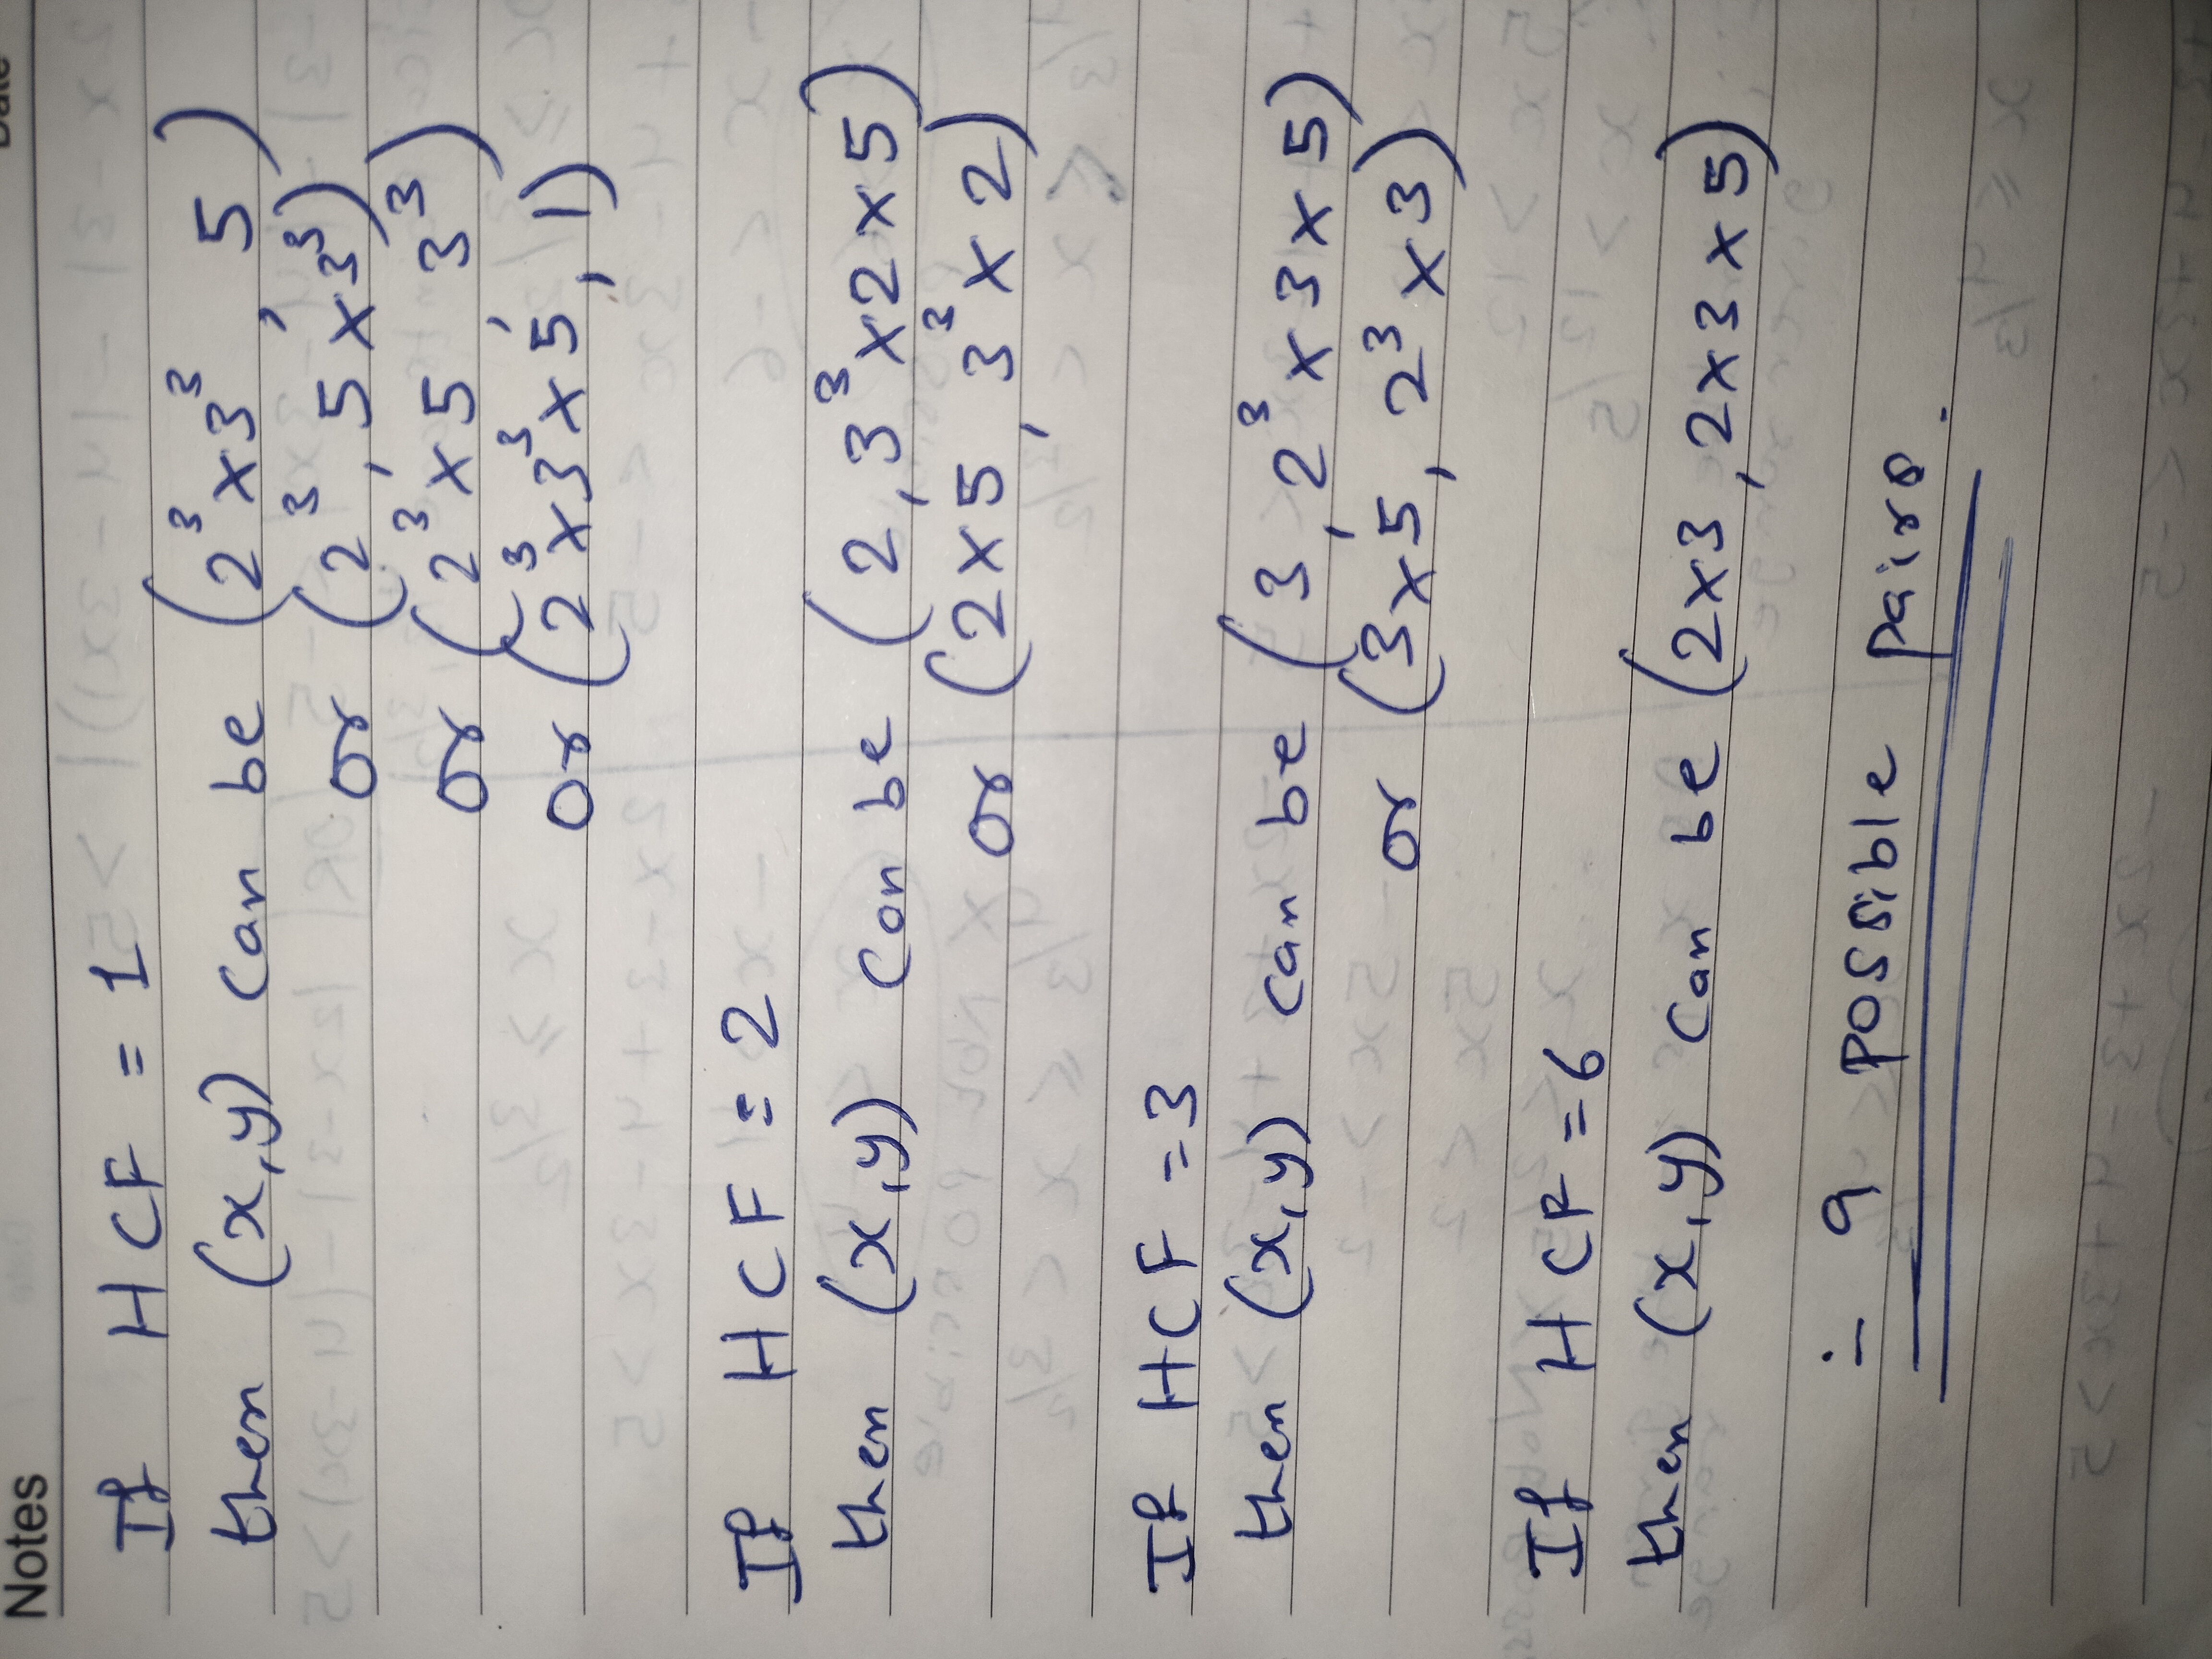 Notes
Date
If HCF = 1
then (x,y) can be (2³ x 3³, 5)
or (2³, 5 x 3³)
or (2³ x 5, 3³)
or (2³ x 3³ x 5, 1)
If HCF = 2
then (x,y) can be (2, 3³ x 2 x 5)
or (2 x 5, 3³ x 2)
If HCF = 3
then (x,y) can be (3, 2³ x 3 x 5)
or (3 x 5, 2³ x 3)
If HCF = 6
then (x,y) can be (2 x 3, 2 x 3 x 5)
∴ 9 possible pairs.